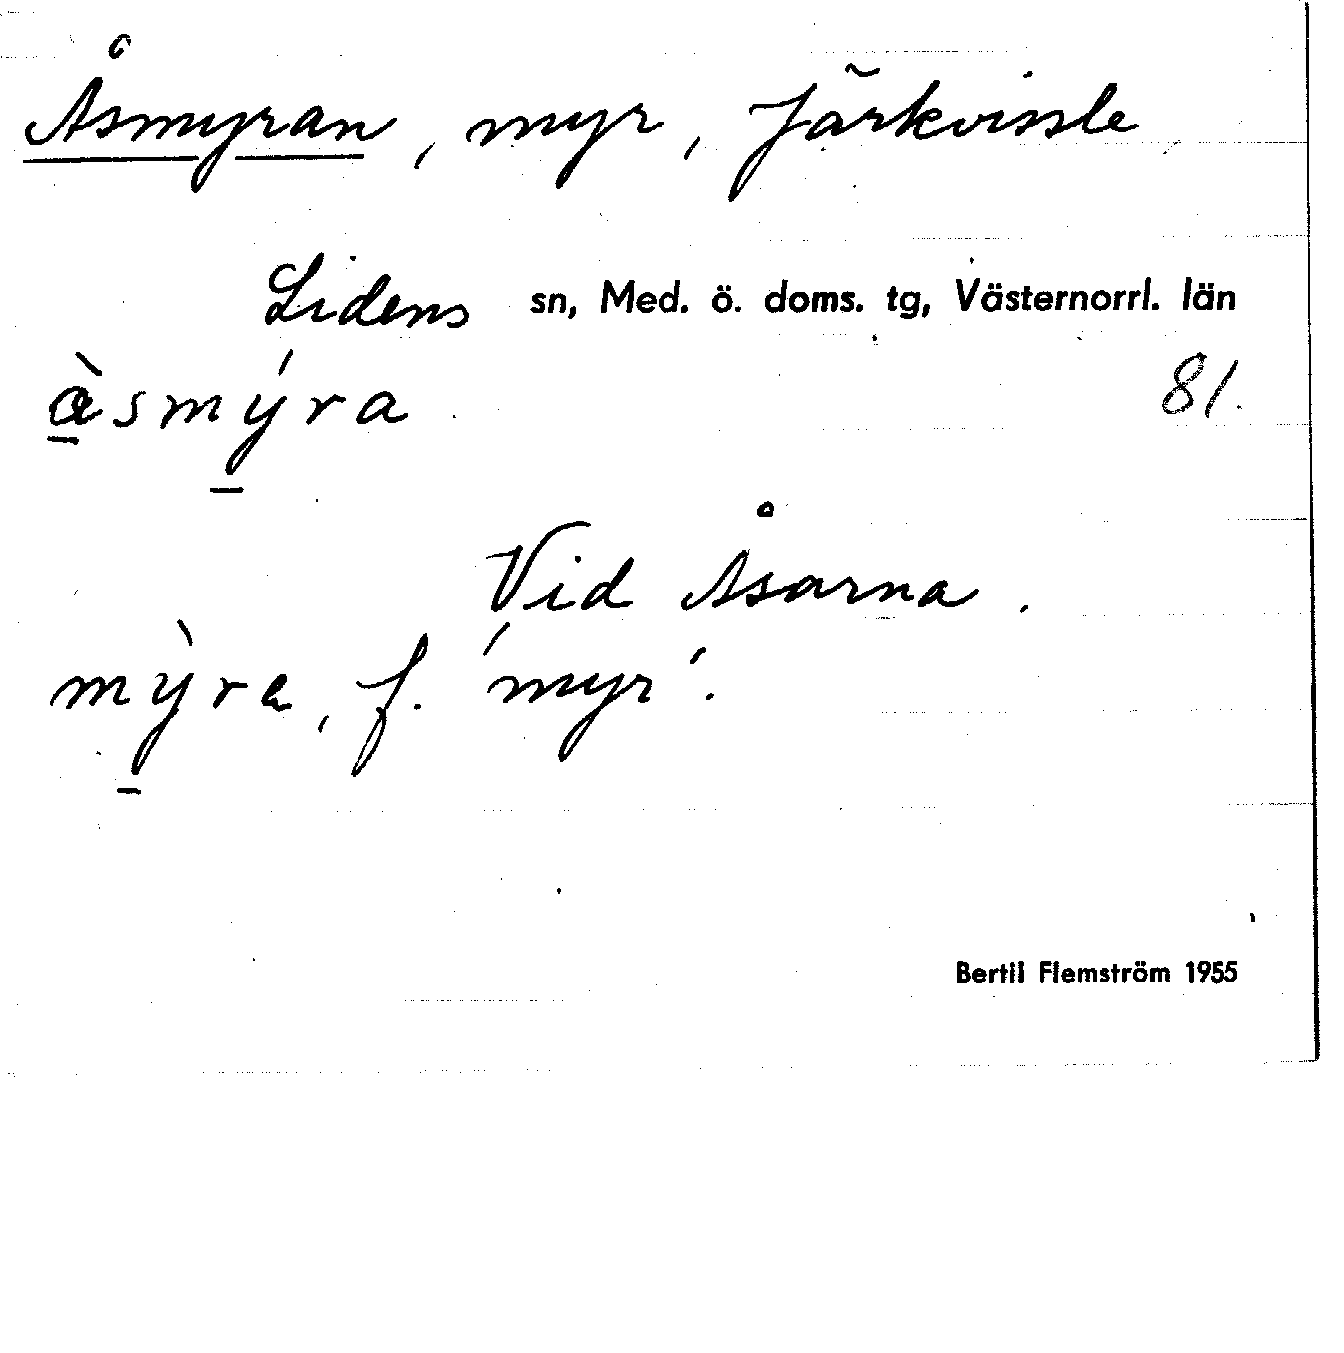 Åsmyran, myr, Järkvissle
Lidens sn, Med. ö. doms. tg, Västernorrl. län
åsmy̱ra 81.
Vid Åsarna.
mỳ̱ra, f. 'myr'.
Bertil Flemström 1955